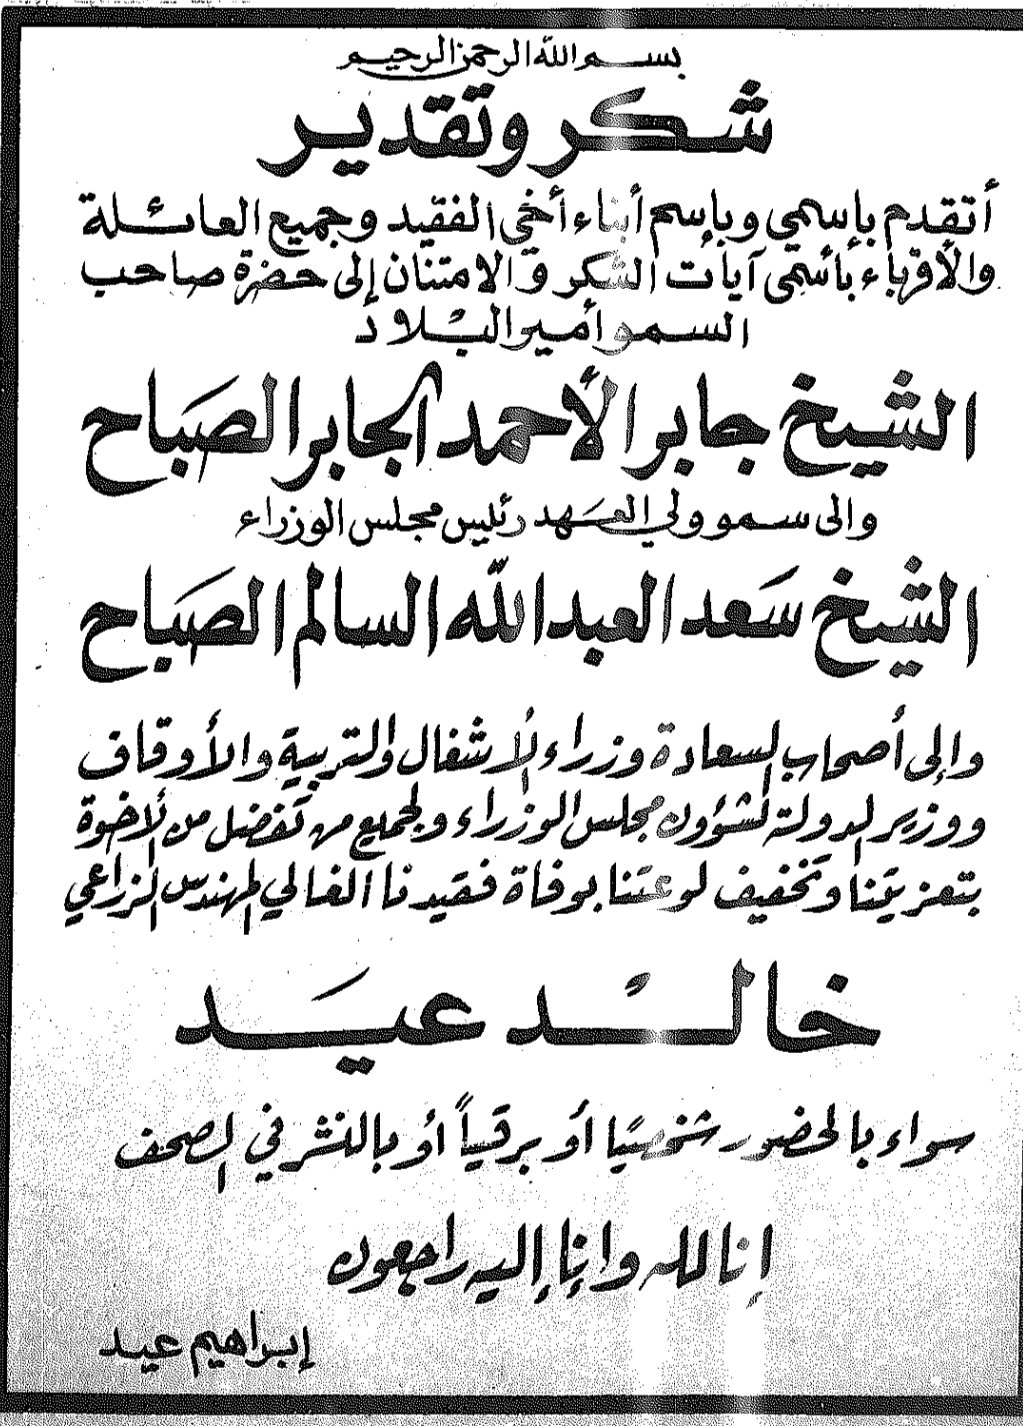 بسم الله الرحمن الرحيم
شكر وتقدير
أتقدم بإسمي وبإسم أبناء أخي الفقيد وجميع العائلة
والأقرباء بأسمى آيات الشكر والامتنان إلى حضرة صاحب
السمو أمير البلاد
الشيخ جابر الأحمد الجابر الصباح
والى سمو ولي العهد رئيس مجلس الوزراء
الشيخ سعد العبدالله السالم الصباح
وإلى أصحاب السعادة وزراء الأشغال والتربية والأوقاف
ووزير الدولة لشؤون مجلس الوزراء ولجميع من تفضل من الأخوة
بتعزيتنا وتخفيف لوعتنا بوفاة فقيدنا الغالي المهندس الزراعي
خالد عيد
سواء بالحضور شخصيًا أو برقياً أو بالنشر في الصحف
إنا لله وإنا إليه راجعون
إبراهيم عيد